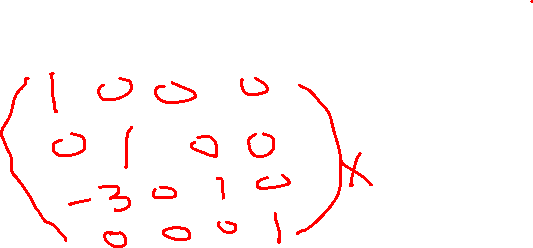 1 0 0 0
0 1 0 0
-3 0 1 0 x
0 0 0 1